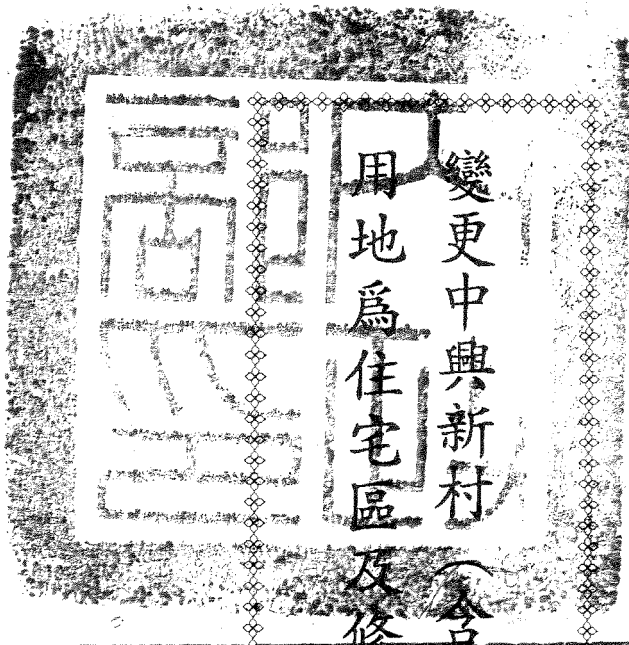 變更中興新村（含
用地爲住宅區及修